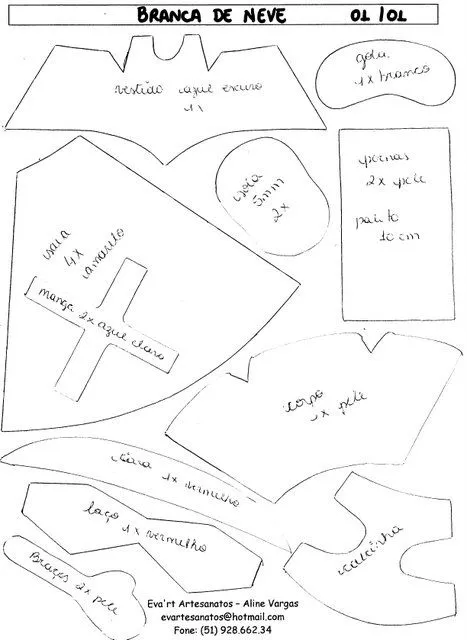 BRANCA DE NEVE 01/01
vestido azul escuro
1x
gola
1x branco
pernas
2x pele
palito
10 cm
5mm
2x
saia
4x
amarelo
manga 2x azul claro
corpo
1x pele
1x vermelho
laço
1x vermelho
calcinha
Braços 2x pele
Eva'rt Artesanatos – Aline Vargas
evartesanatos@hotmail.com
Fone: (51) 928.662.34